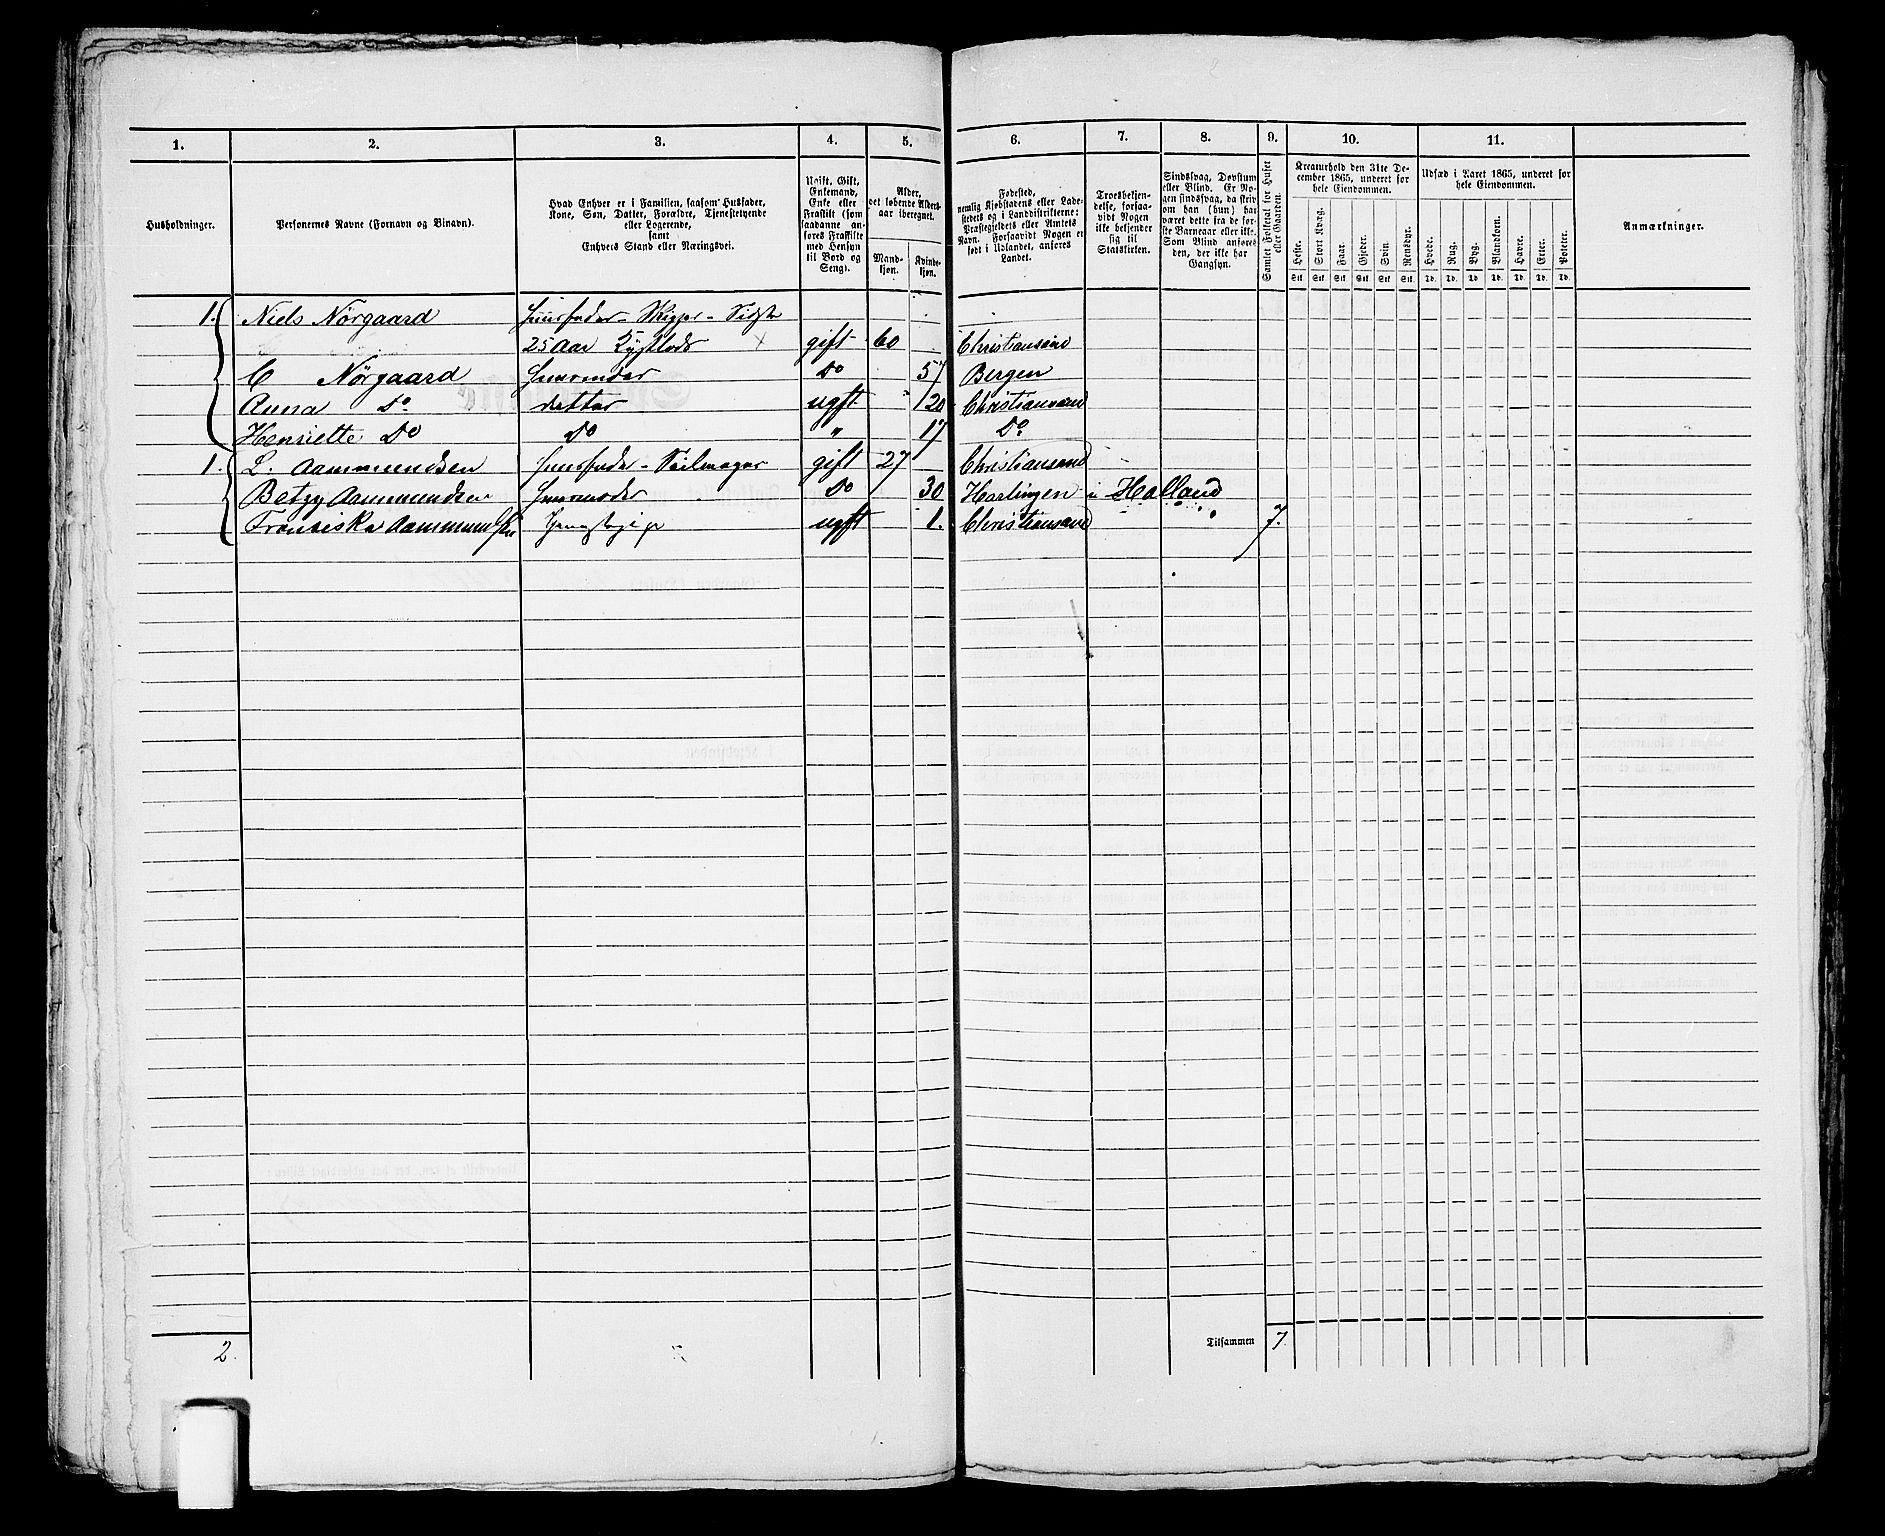 1. 2. 3. 4. 5. 6. 7. 8. 9. 10. 11.
Husholdninger.
Personernes Navne (Fornavn og Binavn).
Hvad Enhver er i Familien, saasom Husfader,
Kone, Søn, Datter, Forældre, Tjenestetyende
eller Logerende,
samt
Enhvers Stand eller Næringsvei.
Ugift, Gift,
Enkemand,
Enke eller
Fraskilt (som
saadanne an-
føres Fraskilte
med Hensyn
til Bord og
Seng).
Alder,
det løbende Alders-
aar iberegnet.
Mand-
kjøn.
Kvinde-
kjøn.
Fødested,
nemlig Kjøbstadens eller Lade-
stedets og i Landdistrikterne:
Præstegjeldets eller Amtets
Navn. Forsaavidt Nogen er
født i Udlandet, anføres
Landet.
Troesbekjen-
delse, forsaa-
vidt Nogen
ikke bekjender
sig til
Statskirken.
Sindssvag, Døvstum
eller Blind. Er No-
gen sindssvag, da skriv
om han (hun) har
været dette fra de før-
ste Barneaar eller ikke.
Som Blind anføres
den, der ikke har
Gangsyn.
Samlet Folketal for Huset
eller Gaarden.
Kreaturhold den 31te De-
cember 1865, underet for
hele Eiendommen.
Heste. Stort Kvæg. Faar. Gjeder. Svin. Rensdyr.
Stk. Stk. Stk. Stk. Stk. Stk.
Udsæd i Aaret 1865, underet for
hele Eiendommen.
Hvede. Rug. Byg. Blandkorn. Havre. Erter. Poteter.
Td. Td. Td. Td. Td. Td. Td.
Anmærkninger.
1. Niels Nörgaard Huusfader - Skipper - Sidste
25 Aar gift 60 Christiansand
C Nörgaard Do 57 Bergen
Anna Do datter ugft 20 Christiansand
Henriette Do Do " 17 Do
1. L. Aammundsen Huusfader - Seilmager gift 27 Christiansand
Betzy Aammundsen Huusmoder Do 30 Harlingen i Holland
Fransiska Aammundsen ugft 1. Christiansand " " 7.
2. Tilsammen 7.